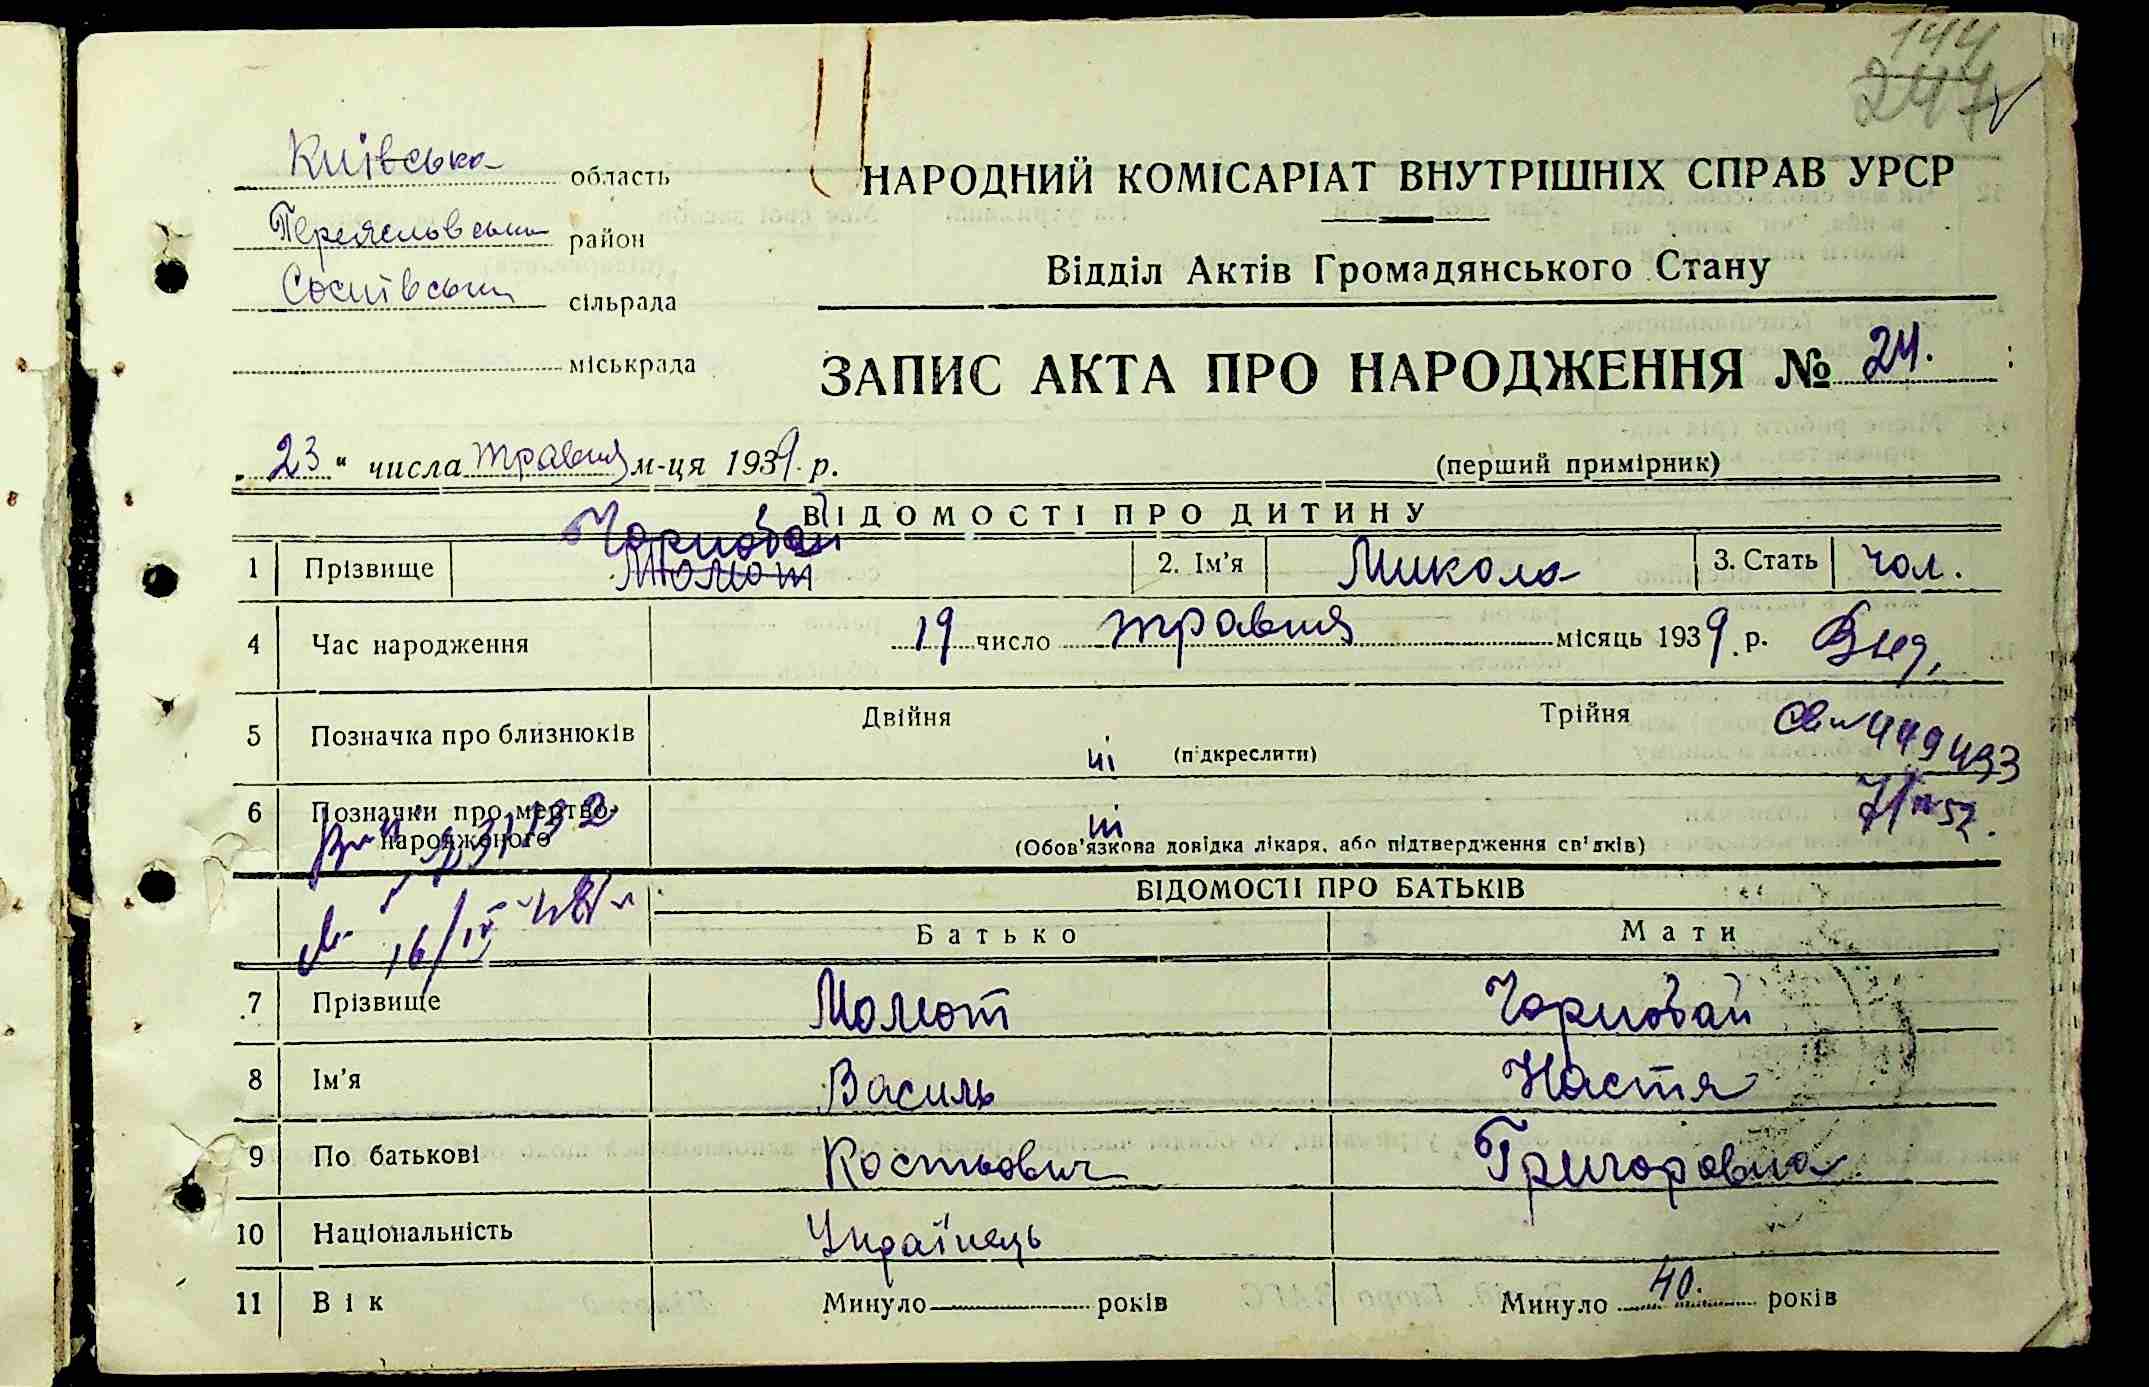 144
247
Київська область
НАРОДНИЙ КОМІСАРІАТ ВНУТРІШНІХ СПРАВ УРСР
Переяславська район
Відділ Актів Громадянського Стану
Соснівська сільрада
міськрада
ЗАПИС АКТА ПРО НАРОДЖЕННЯ № 24.
„23“ числа травня м-ця 1939 р.
(перший примірник)
ВІДОМОСТІ ПРО ДИТИНУ
Чорновай
1 Прізвище Момот 2. Ім'я Микола 3. Стать чол.
4 Час народження 19 число травня місяць 1939 р. Вид.
5 Позначка про близнюків Двійня ні (підкреслити) Трійня
449493
6 Позначки про мертво-народженого ні
(Обов'язкова довідка лікаря, або підтвердження св'дків)
ВІДОМОСТІ ПРО БАТЬКІВ
Батько Мати
7 Прізвище Момот Чорновай
8 Ім'я Василь Настя
9 По батькові Костьович Григоровна
10 Національність Українець
11 Вік Минуло років Минуло 40. років